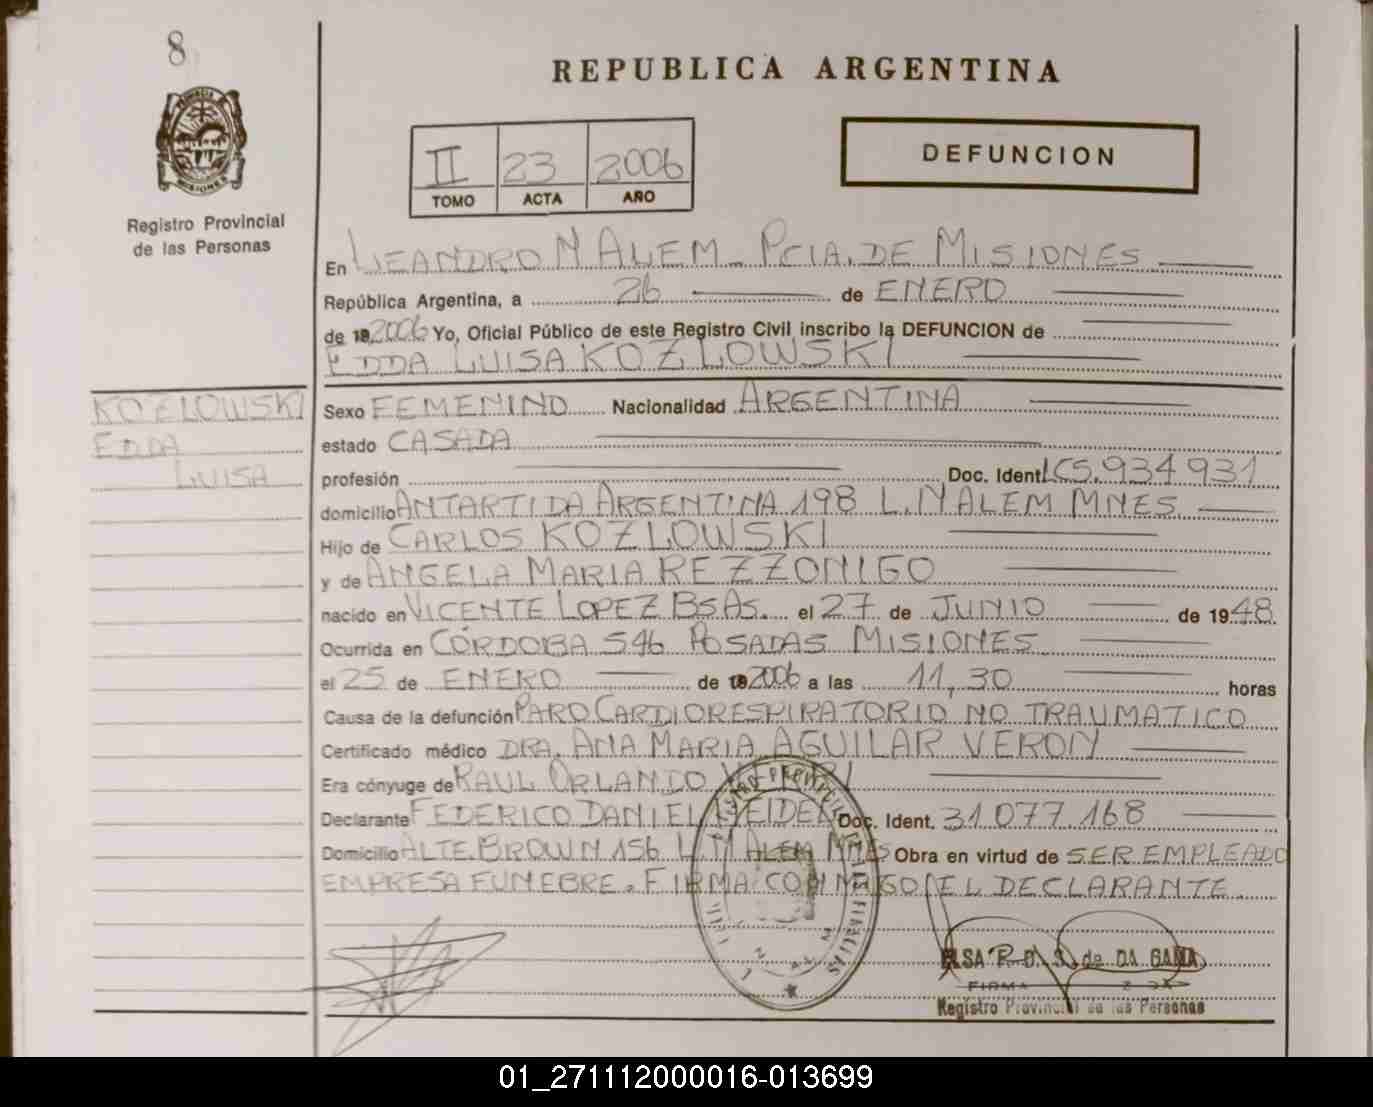 8
REPUBLICA ARGENTINA
II 23 2006
TOMO ACTA AÑO
DEFUNCION
Registro Provincial
de las Personas
En LEANDRO N ALEM - PCIA. DE MISIONES
República Argentina, a 26 de ENERO
de 19 2006 Yo, Oficial Público de este Registro Civil inscribo la DEFUNCION de
EDDA LUISA KOZLOWSKI
KOZLOWSKI
EDDA
LUISA
Sexo FEMENINO Nacionalidad ARGENTINA
estado CASADA
profesión Doc. Ident. LC5.934931
domicilio ANTARTIDA ARGENTINA 198 L.N ALEM MNES
Hijo de CARLOS KOZLOWSKI
y de ANGELA MARIA REZZONIGO
nacido en VICENTE LOPEZ BSAS. el 27 de JUNIO de 1948
Ocurrida en CÓRDOBA 546 POSADAS MISIONES
el 25 de ENERO de 19 2006 a las 11,30 horas
Causa de la defunción PARO CARDIORESPIRATORIO NO TRAUMATICO
Certificado médico DRA. ANA MARIA AGUILAR VERON
Era cónyuge de RAUL ORLANDO
Declarante FEDERICO DANIEL Doc. Ident. 31.077.168
Domicilio ALTE. BROWN 156 L.N ALEM MNES Obra en virtud de SER EMPLEADO
EMPRESA FUNEBRE. FIRMA CONMIGO EL DECLARANTE.
ELSA R. D. S. de DA GAMA
FIRMA
Registro Provincial de las Personas
01_271112000016-013699